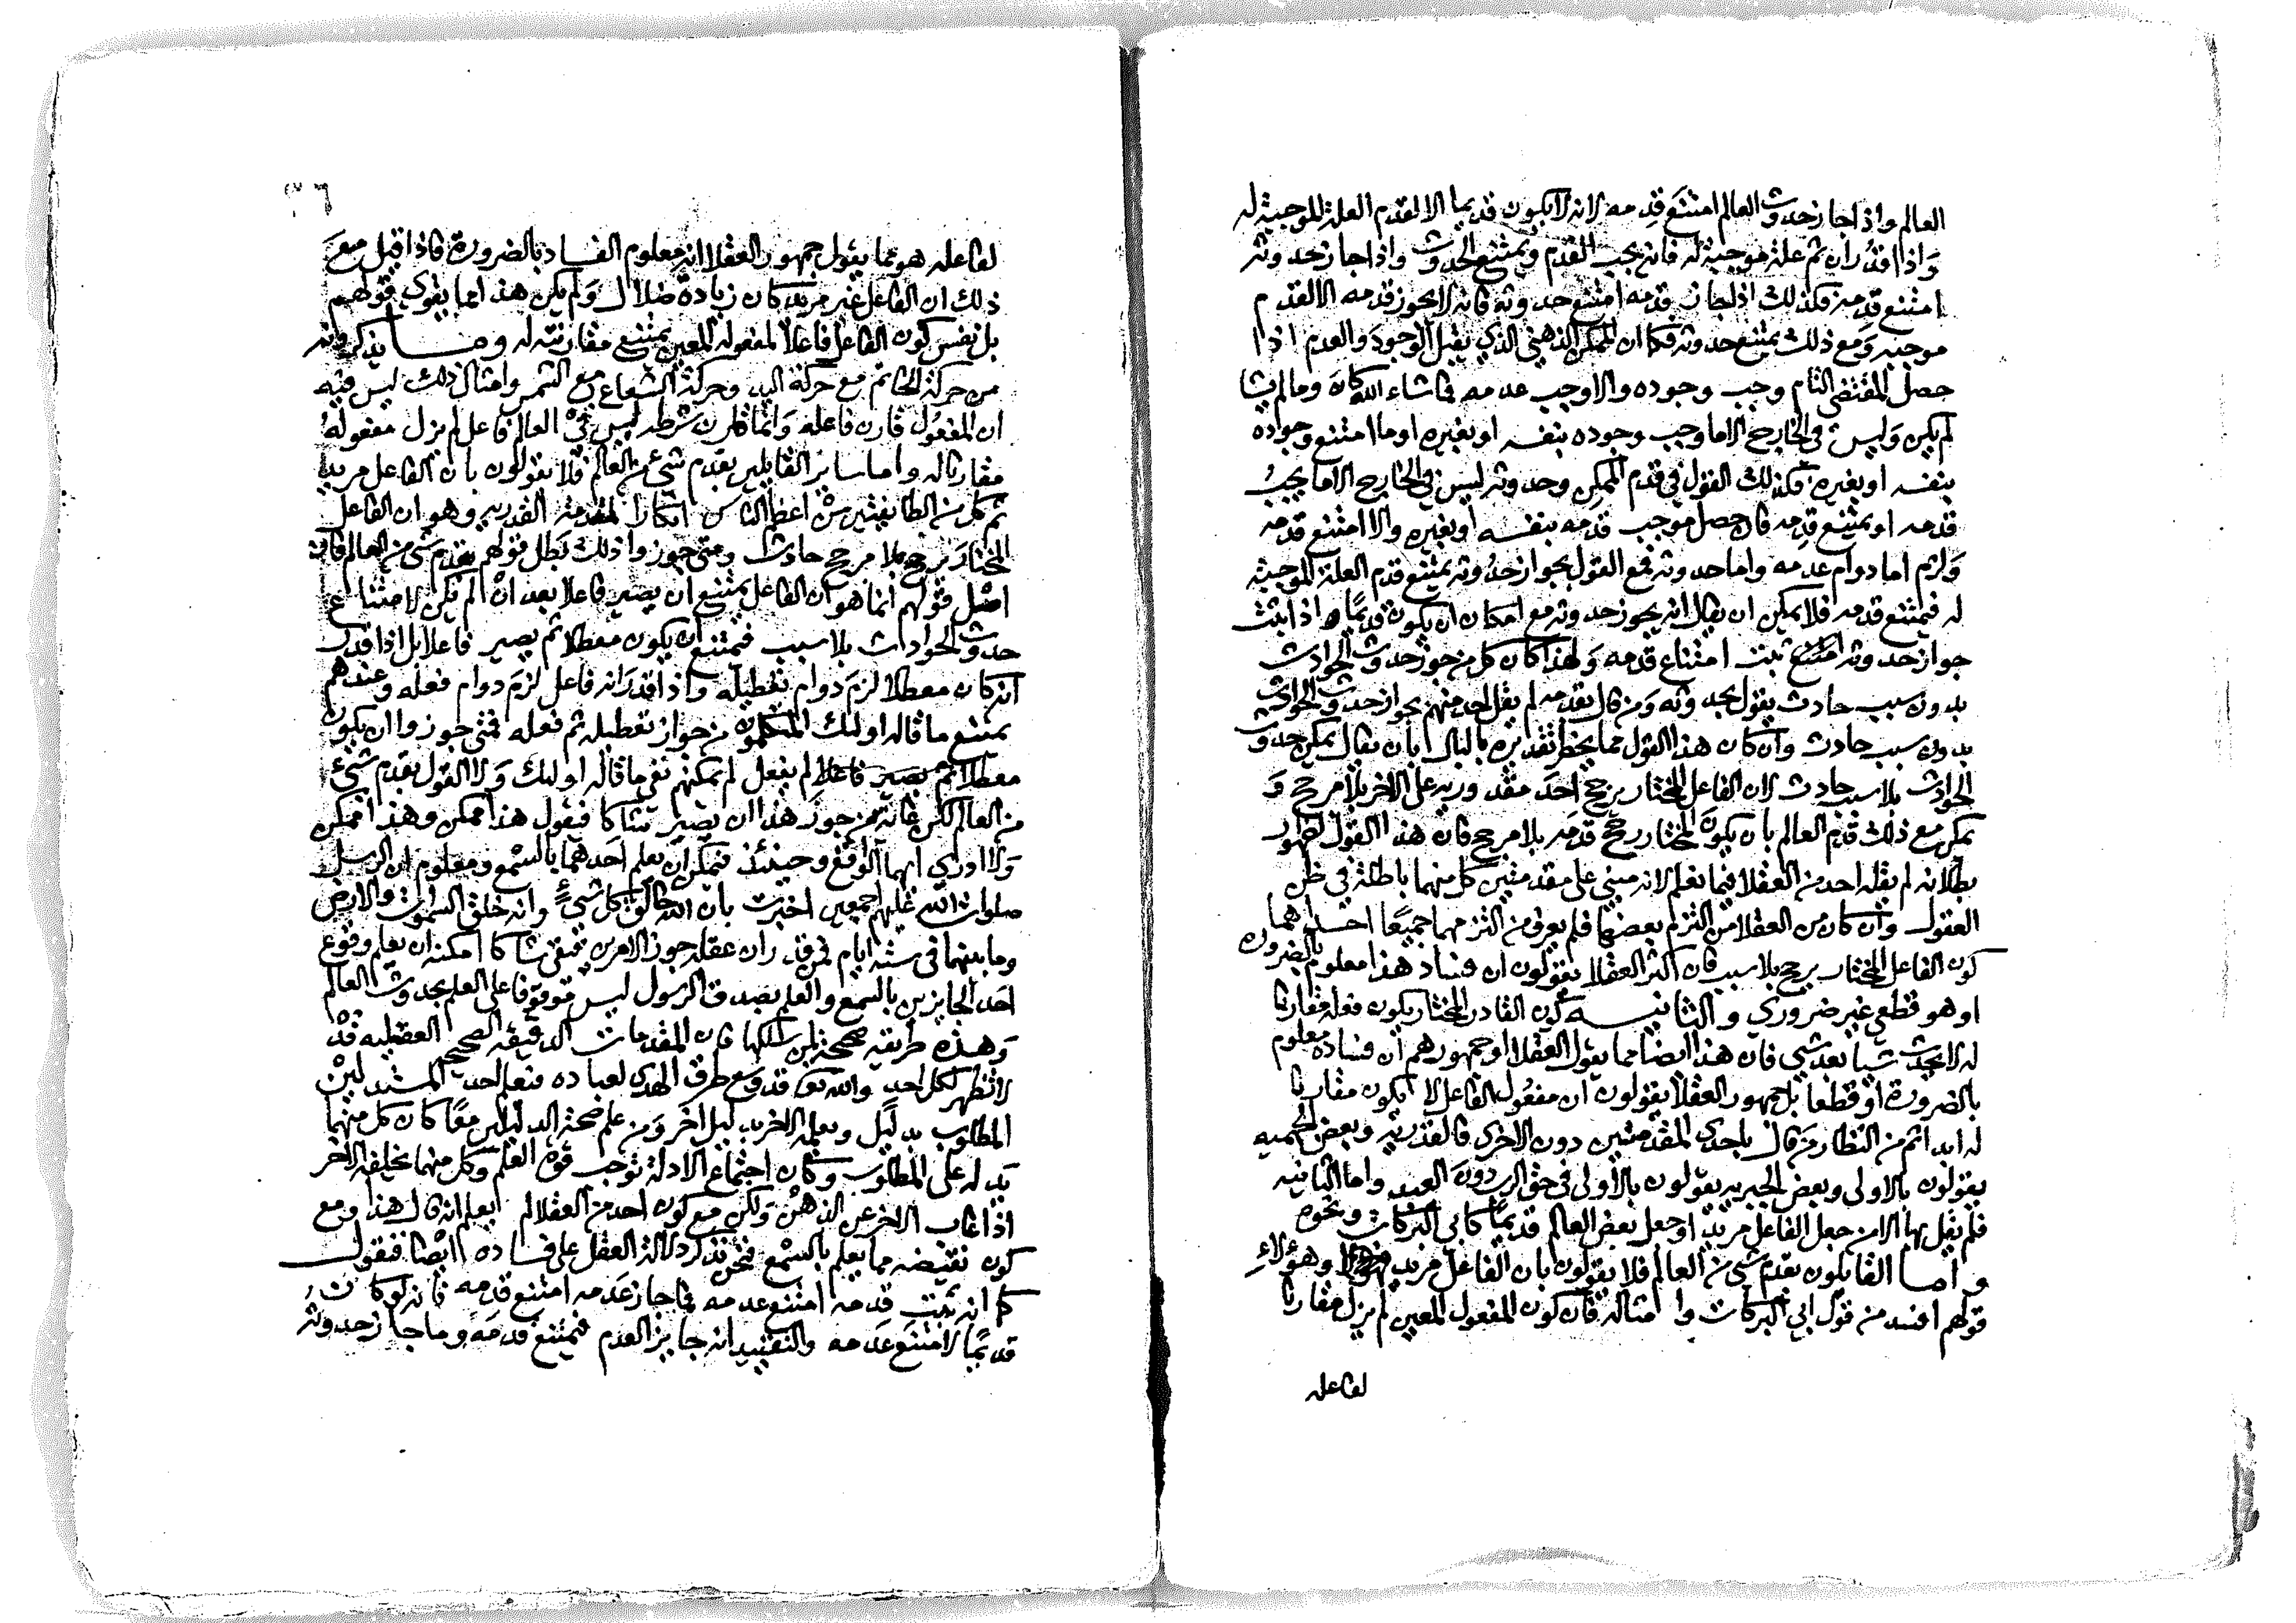 العالم واذا جاز حدوث العالم امتنع قدمه لانه لا يكون قديما الا لقدم العلة الموجبة له
واذا قدر ان ثم علة موجبة له فانه يجب القدم ويمتنع الحدوث واذا جاز حدوثه
امتنع قدمه فكذلك اذا جاز قدمه امتنع حدوثه فانه لا يجوز قدمه الا لقدم
موجبه ومع ذلك يمتنع حدوثه فكما ان الممكن الذهني الذي يقبل الوجود والعدم اذا
حصل المقتضى التام وجب وجوده والا وجب عدمه فما شاء الله كان وما لم يشا
لم يكن وليس في الخارج الا ما وجب وجوده بنفسه او بغيره او ما امتنع وجوده
بنفسه او بغيره فكذلك القول في قدم الممكن وحدوثه ليس في الخارج الا ما يجب
قدمه او يمتنع قدمه فان حصل موجب قدمه بنفسه او بغيره والا امتنع قدمه
ولزم اما دوام عدمه واما حدوثه فمع القول بجواز حدوثه يمتنع قدم العلة الموجبة
له فيمتنع قدمه فلا يمكن ان يقال انه يجوز حدوثه مع امكان ان يكون قديما اذا ثبت
جواز حدوثه ثبت امتناع قدمه ولهذا كان كل من جوز حدوث الحوادث
بدون سبب حادث يقول بحدوثه ومن قال بقدمه لم يقل احد منهم بجواز حدوث الحوادث
بدون سبب حادث وان كان هذا القول مما يخطر تقديره بالبال بان يقال يمكن حدوث
الحوادث بلا سبب حادث لان الفاعل المختار يرجح احد مقدوريه على الاخر بلا مرجح و
يمكن مع ذلك قدم العالم بان يكون المختار رجح قدمه بلا مرجح فان هذا القول لظهور
بطلانه لم يقله احد من العقلا فيما نعلم لانه مبني على مقدمتين كل منهما باطلة في ظن
العقول وان كان من العقلا من التزم بعضهما فلم يعرف من التزمهما جميعا احداهما
كون الفاعل المختار يرجح بلا سبب فان اكثر العقلا يقولون ان فساد هذا معلوم بالضرورة
او هو قطعي غير ضروري والثانيه كون القادر المختار يكون فعله مقارنا
له لا يحدث شيا بعد شي فان هذا ايضا مما يقول العقلا او جمهورهم ان فساده معلوم
بالضرورة او قطعا بل جمهور العقلا يقولون ان مفعول الفاعل لا يكون مقارنا
له ابدا ثم من النظار من قال باحدى المقدمتين دون الاخرى فالقدرية وبعض الجهميه
يقولون بالاولى وبعض الجبريه يقولون بالاولى في حق الرب دون العبد واما الثانيه
فلم يقل بها الا من جعل الفاعل مريدا وجعل بعض العالم قديما كابي البركات ونحوه
واما القايلون بقدم شي من العالم فلا يقولون بان الفاعل مريد وهؤلاء
قولهم افسد من قول ابي البركات وامثاله فان كون المفعول المعين لم يزل مقارنا
لفاعله
لفاعله هو مما يقول جمهور العقلا انه معلوم الفساد بالضرورة فاذا قيل مع
ذلك ان الفاعل غير مريد كان زيادة ضلال ولم يكن هذا مما يقوي قولهم
بل نفس كون الفاعل فاعلا لمفعوله المعين يمتنع مقارنته له وما يذكرونه
من حركة الخاتم مع حركة اليد وحركة الشعاع مع الشمس وامثال ذلك ليس فيه
ان المفعول قارن فاعله وانما قارن شرطه ليس في العالم فاعل لم يزل مفعوله
مقارنا له واما ساير القايلين بقدم شيء من العالم فلا يقولون بان الفاعل مريدا
ثم كل من الطايفتين من اعظم الناس انكارا لمقدمة القدريه وهو ان الفاعل
المختار يرجح بلا مرجح حادث ومتى جوزوا ذلك بطل قولهم بقدم شي من العالم فان
اصل قولهم انما هو ان الفاعل يمتنع ان يصير فاعلا بعد ان لم يكن لامتناع
حدوث الحوادث بلا سبب فيمتنع ان يكون معطلا ثم يصير فاعلا بل اذا قدر
انه كان معطلا لزم دوام تعطيله واذا قدر انه فاعل لزم دوام فعله وعندهم
يمتنع ما قاله اولئك المتكلمون من جواز تعطيله ثم فعله فمتى جوزوا ان يكون
معطلا ثم يصير فاعلا لم يمكنهم نفي ما قاله اولئك ولا القول بقدم شيء
من العالم لكن غاية من جوز هذا ان يصير شاكا فيقول هذا ممكن وهذا ممكن
ولا ادري ايهما الواقع وحينئذ فيمكن ان يعلم احدهما بالسمع ومعلوم ان الرسل
صلوات الله عليهم اجمعين اخبرت بان الله خالق كل شيء وانه خلق السموات والارض
وما بينهما في ستة ايام فمن قدر ان عقله جوز الامرين فبقي شاكا امكنه ان يعلم وقوع
احد الجايزين بالسمع والعلم بصدق الرسول ليس موقوفا على العلم بحدوث العالم
وهذه طريقه صحيحة لمن سلكها فان المقدمات الدقيقه الصحيحه العقليه قد
لا تظهر لكل احد والله تعالى قد وسع طرق الهدى لعباده فيعلم احد المستدلين
المطلوب بدليل ويعلمه الاخر بدليل اخر ومن علم صحة الدليلين معا كان كل منهما
يدله على المطلوب وكان اجتماع الادلة توجب قوة العلم وكل منهما يخلفه الاخر
اذا غاب الاخر عن الذهن ولكن مع كون احد من العقلا لم يعلم انه قال هذا ومع
كون نقيضه مما يعلم بالسمع فنحن نذكر دلالة العقل على فساده ايضا فنقول
كما انه ثبت قدمه امتنع عدمه فما جاز عدمه امتنع قدمه فانه لو كان
قديما لامتنع عدمه والتقدير انه جايز العدم فيمتنع قدمه وما جاز حدوثه